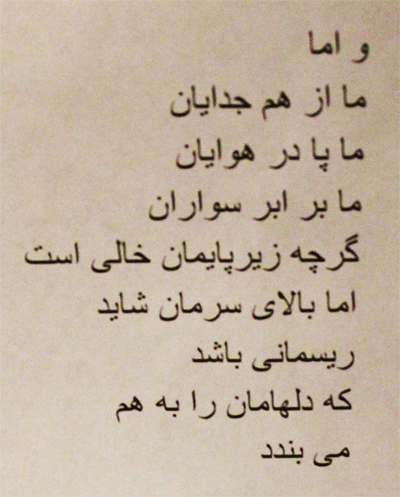 و اما
ما از هم جدایان
ما پا در هوایان
ما بر ابر سواران
گرچه زیرپایمان خالی است
اما بالای سرمان شاید
ریسمانی باشد
که دلهامان را به هم
می بندد